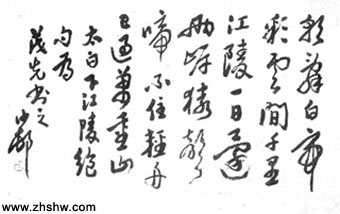 朝辭白帝
彩雲間千里
江陵一日還
兩岸猿聲
啼不住輕舟
已過萬重山
太白下江陵絕
句為
茂先書之 沙邨
www.zhshw.com